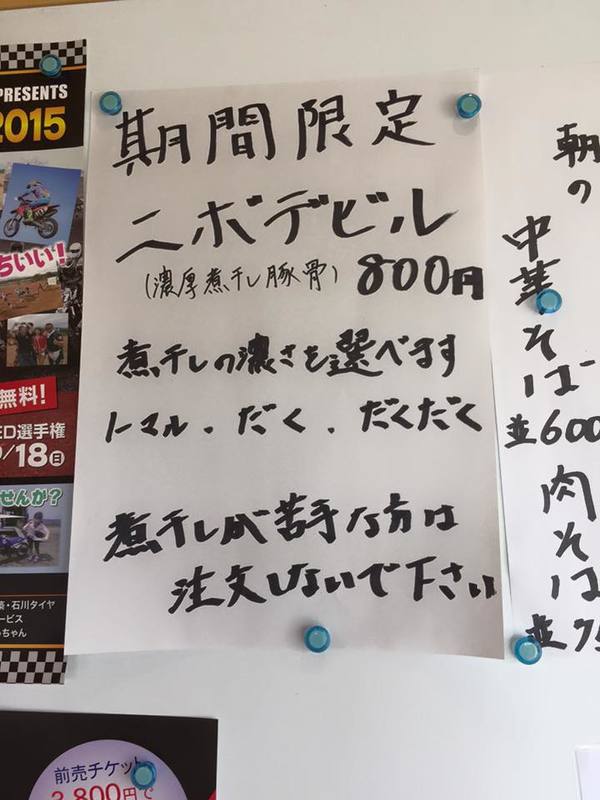 PRESENTS
2015
ちいい!
無料!
ED選手権
/18(日)
せんか?
・石川タイヤ
ービス
ちゃん
期間限定
ニボデビル
(濃厚煮干し豚骨) 800円
煮干しの濃さを選べます
ノーマル . だく . だくだく
煮干しが苦手な方は
注文しないで下さい
朝
の
中華そば
並600
肉そば
並75
前売チケット
2,800円で